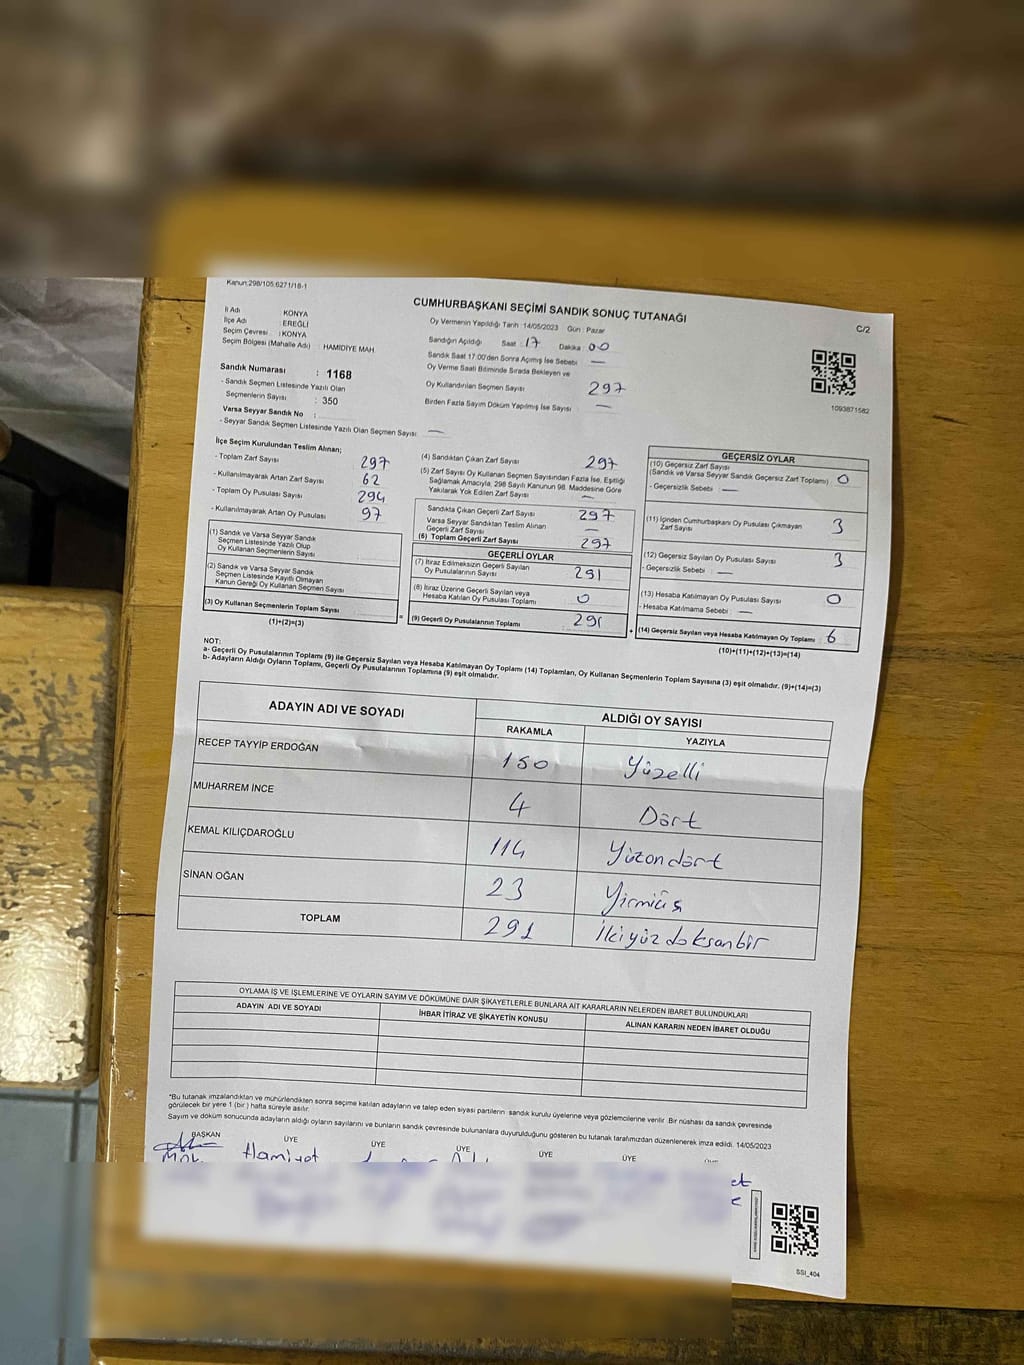 Kanun:298/105.6271/18-1
CUMHURBAŞKANI SEÇİMİ SANDIK SONUÇ TUTANAĞI
C/2
İl Adı : KONYA
İlçe Adı : EREĞLİ
Seçim Çevresi : KONYA
Seçim Bölgesi (Mahalle Adı) : HAMIDIYE MAH
Sandık Numarası : 1168
- Sandık Seçmen Listesinde Yazılı Olan
Seçmenlerin Sayısı : 350
Varsa Seyyar Sandık No :
- Seyyar Sandık Seçmen Listesinde Yazılı Olan Seçmen Sayısı: —
Oy Vermenin Yapıldığı Tarih : 14/05/2023 Gün : Pazar
Sandığın Açıldığı Saat : 17 Dakika : 00
Sandık Saat 17:00'den Sonra Açılmış İse Sebebi : —
Oy Verme Saati Bitiminde Sırada Bekleyen ve
Oy Kullandırılan Seçmen Sayısı : 297
Birden Fazla Sayım Döküm Yapılmış İse Sayısı : —
1093871582
İlçe Seçim Kurulundan Teslim Alınan;
- Toplam Zarf Sayısı : 297
- Kullanılmayarak Artan Zarf Sayısı : 62
- Toplam Oy Pusulası Sayısı : 294
- Kullanılmayarak Artan Oy Pusulası : 97
(1) Sandık ve Varsa Seyyar Sandık
Seçmen Listesinde Yazılı Olup
Oy Kullanan Seçmenlerin Sayısı
(2) Sandık ve Varsa Seyyar Sandık
Seçmen Listesinde Kayıtlı Olmayan
Kanun Gereği Oy Kullanan Seçmen Sayısı
(3) Oy Kullanan Seçmenlerin Toplam Sayısı
(1)+(2)=(3)
(4) Sandıktan Çıkan Zarf Sayısı : 297
(5) Zarf Sayısı Oy Kullanan Seçmen Sayısından Fazla İse, Eşitliği
Sağlamak Amacıyla, 298 Sayılı Kanunun 98. Maddesine Göre
Yakılarak Yok Edilen Zarf Sayısı : —
Sandıkta Çıkan Geçerli Zarf Sayısı : 297
Varsa Seyyar Sandıktan Teslim Alınan
Geçerli Zarf Sayısı : —
(6) Toplam Geçerli Zarf Sayısı : 297
GEÇERLİ OYLAR
(7) İtiraz Edilmeksizin Geçerli Sayılan
Oy Pusulalarının Sayısı : 291
(8) İtiraz Üzerine Geçerli Sayılan veya
Hesaba Katılan Oy Pusulası Toplamı : 0
(9) Geçerli Oy Pusulalarının Toplamı : 291
GEÇERSİZ OYLAR
(10) Geçersiz Zarf Sayısı
(Sandık ve Varsa Seyyar Sandık Geçersiz Zarf Toplamı) : 0
- Geçersizlik Sebebi : —
(11) İçinden Cumhurbaşkanı Oy Pusulası Çıkmayan
Zarf Sayısı : 3
(12) Geçersiz Sayılan Oy Pusulası Sayısı : 3
- Geçersizlik Sebebi : —
(13) Hesaba Katılmayan Oy Pusulası Sayısı : 0
- Hesaba Katılmama Sebebi : —
(14) Geçersiz Sayılan veya Hesaba Katılmayan Oy Toplamı : 6
(10)+(11)+(12)+(13)=(14)
NOT:
a- Geçerli Oy Pusulalarının Toplamı (9) ile Geçersiz Sayılan veya Hesaba Katılmayan Oy Toplamı (14) Toplamları, Oy Kullanan Seçmenlerin Toplam Sayısına (3) eşit olmalıdır. (9)+(14)=(3)
b- Adayların Aldığı Oyların Toplamı, Geçerli Oy Pusulalarının Toplamına (9) eşit olmalıdır.
ADAYIN ADI VE SOYADI
ALDIĞI OY SAYISI
RAKAMLA YAZIYLA
RECEP TAYYİP ERDOĞAN 150 Yüzelli
MUHARREM İNCE 4 Dört
KEMAL KILIÇDAROĞLU 114 Yüzondört
SİNAN OĞAN 23 Yirmiüç
TOPLAM 291 İkiyüzdoksanbir
OYLAMA İŞ VE İŞLEMLERİNE VE OYLARIN SAYIM VE DÖKÜMÜNE DAİR ŞİKAYETLERLE BUNLARA AİT KARARLARIN NELERDEN İBARET BULUNDUKLARI
ADAYIN ADI VE SOYADI İHBAR İTİRAZ VE ŞİKAYETİN KONUSU ALINAN KARARIN NEDEN İBARET OLDUĞU
*Bu tutanak imzalandıktan ve mühürlendikten sonra seçime katılan adayların ve talep eden siyasi partilerin sandık kurulu üyelerine veya gözlemcilerine verilir. Bir nüshası da sandık çevresinde
görülecek bir yere 1 (bir) hafta süreyle asılır.
Sayım ve döküm sonucunda adayların aldığı oyların sayılarını ve bunların sandık çevresinde bulunanlara duyurulduğunu gösteren bu tutanak tarafımızdan düzenlenerek imza edildi. 14/05/2023
BAŞKAN ÜYE ÜYE ÜYE ÜYE ÜYE
Hamiyet
SSI_404